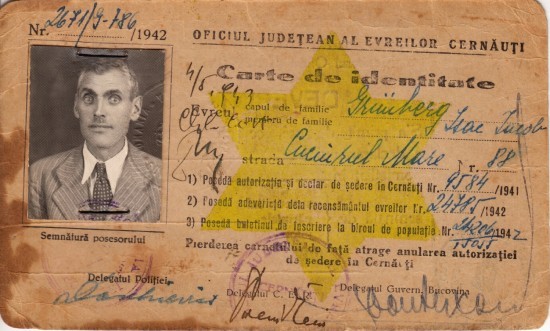 Nr. 2671/9-786/1942
OFICIUL JUDEȚEAN AL EVREILOR CERNĂUȚI
Carte de identitate
Evreu
capul de familie
membru de familie
Grünberg
Isac Iacob
strada Cuciurul Mare Nr. 88
1) Posedă autorizația și declar de ședere în Cernăuți Nr. 9584/1941
2) Posedă adeverința dela recensământul evreilor Nr. 24795/1942
3) Posedă buletinul de înscriere la biroul de populație Nr. /1942
Pierderea carnetului de față atrage anularea autorizației
de ședere în Cernăuți
Semnătură posesorului
Delegatul Poliției
Delegatul C. E.
Delegatul Guvern. Bucovina